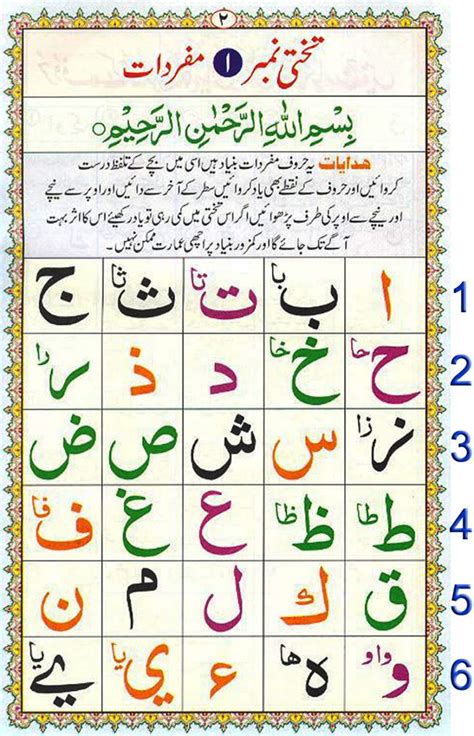 ٢
تختی نمبر ١ مفردات
بِسْمِ اللّٰهِ الرَّحْمٰنِ الرَّحِیْمِ ○
ھدایات یہ حروف مفردات بنیاد ہیں اسی میں بچے کے تلفظ درست
کروائیں اور حروف کے نقطے بھی یاد کروائیں سطر کے آخر سے دائیں اور اوپر سے نیچے
اور نیچے سے اوپر کی طرف پڑھوائیں اگر اس تختی میں کمی رہی تو یاد رکھیئے اس کا اثر بہت
آگے تک جائے گا اور کمزور بنیاد پر اچھی عمارت ممکن نہیں۔
ا ب با ت تا ث ثا ج 1
ح حا خ خا د ذ ر را 2
ز زا س ش ص ض 3
ط طا ظ ظا ع غ ف فا 4
ق ك ل م ن 5
و واو ه ها ء ي يا ے يا 6